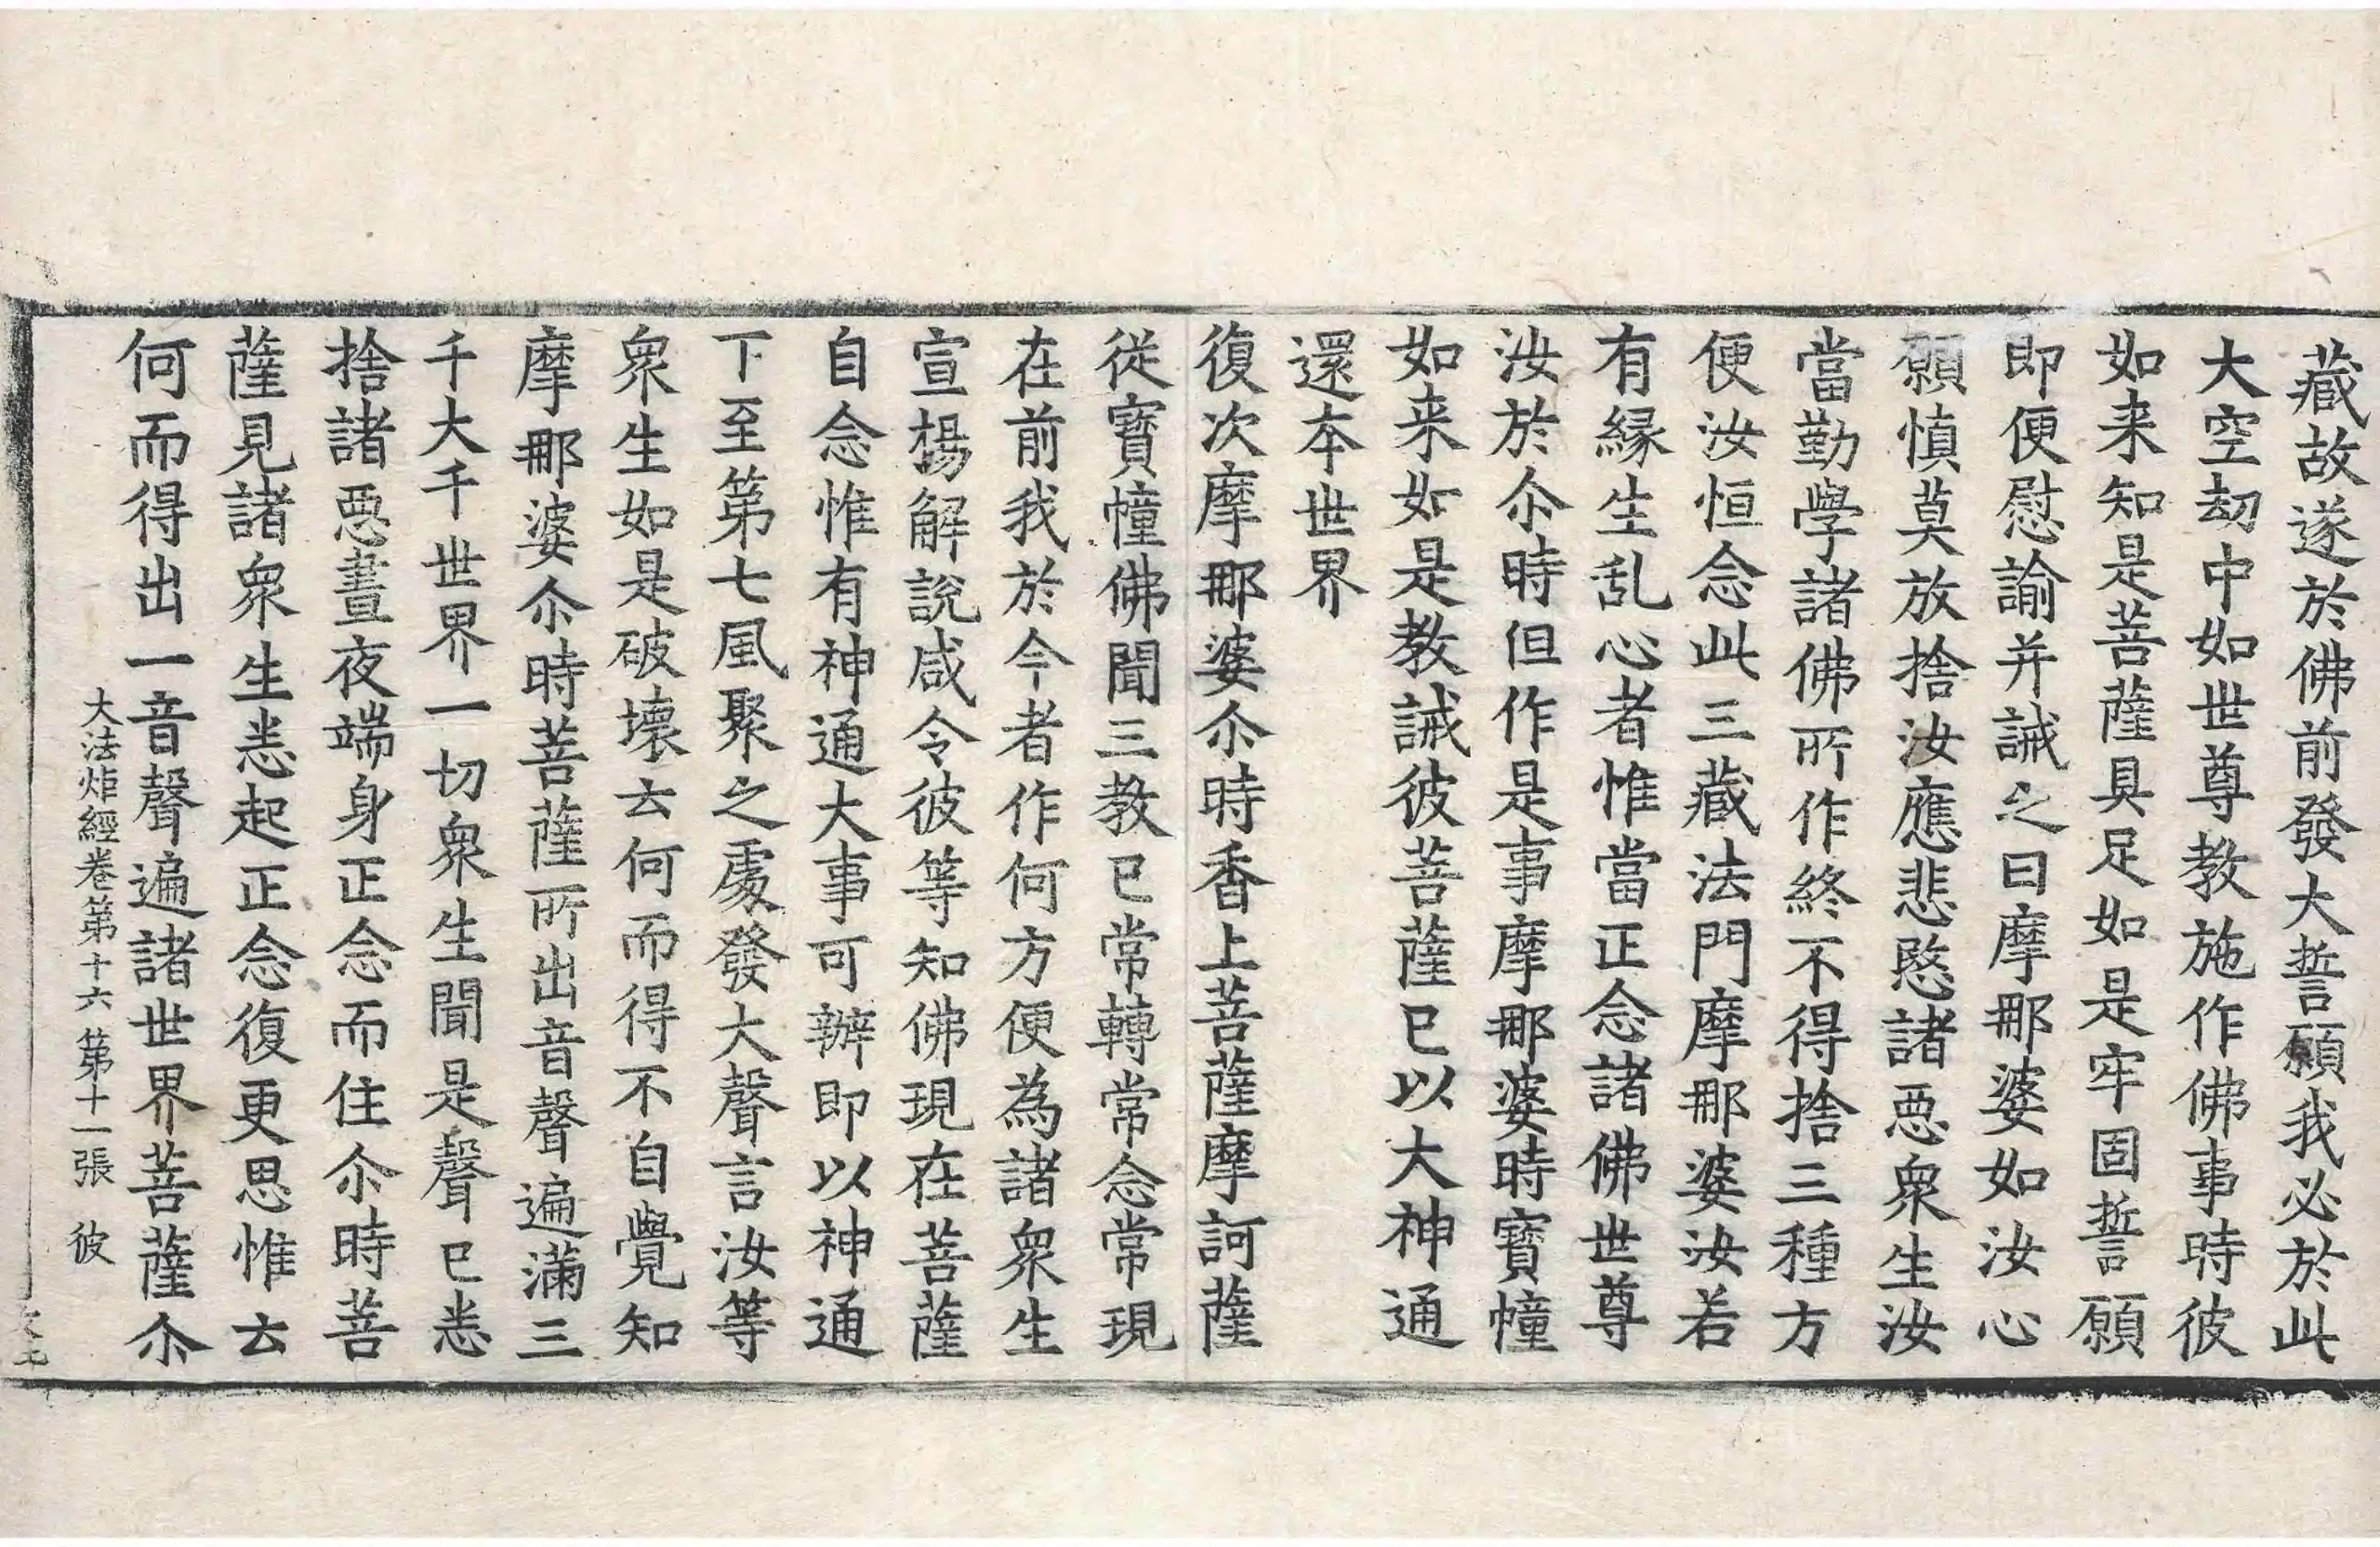 藏故遂於佛前發大誓願我必於此
大空劫中如世尊教施作佛事時彼
如来知是菩薩具足如是牢固誓願
即便慰諭并誡之曰摩那婆如汝心
願慎莫放捨汝應悲愍諸惡衆生汝
當勤學諸佛所作終不得捨三種方
便汝恒念此三藏法門摩那婆汝若
有緣生乱心者惟當正念諸佛世尊
汝於尒時但作是事摩那婆時寶幢
如来如是教誡彼菩薩已以大神通
還本世界
復次摩那婆尒時香上菩薩摩訶薩
從寶幢佛聞三教已常轉常念常現
在前我於今者作何方便為諸衆生
宣揚解說咸令彼等知佛現在菩薩
自念惟有神通大事可辦即以神通
下至第七風聚之處發大聲言汝等
衆生如是破壞云何而得不自覺知
摩那婆尒時菩薩所出音聲遍滿三
千大千世界一切衆生聞是聲已悉
捨諸惡晝夜端身正念而住尒時菩
薩見諸衆生悉起正念復更思惟云
何而得出一音聲遍諸世界菩薩尒
大法炬經卷第十六 第十一張 彼